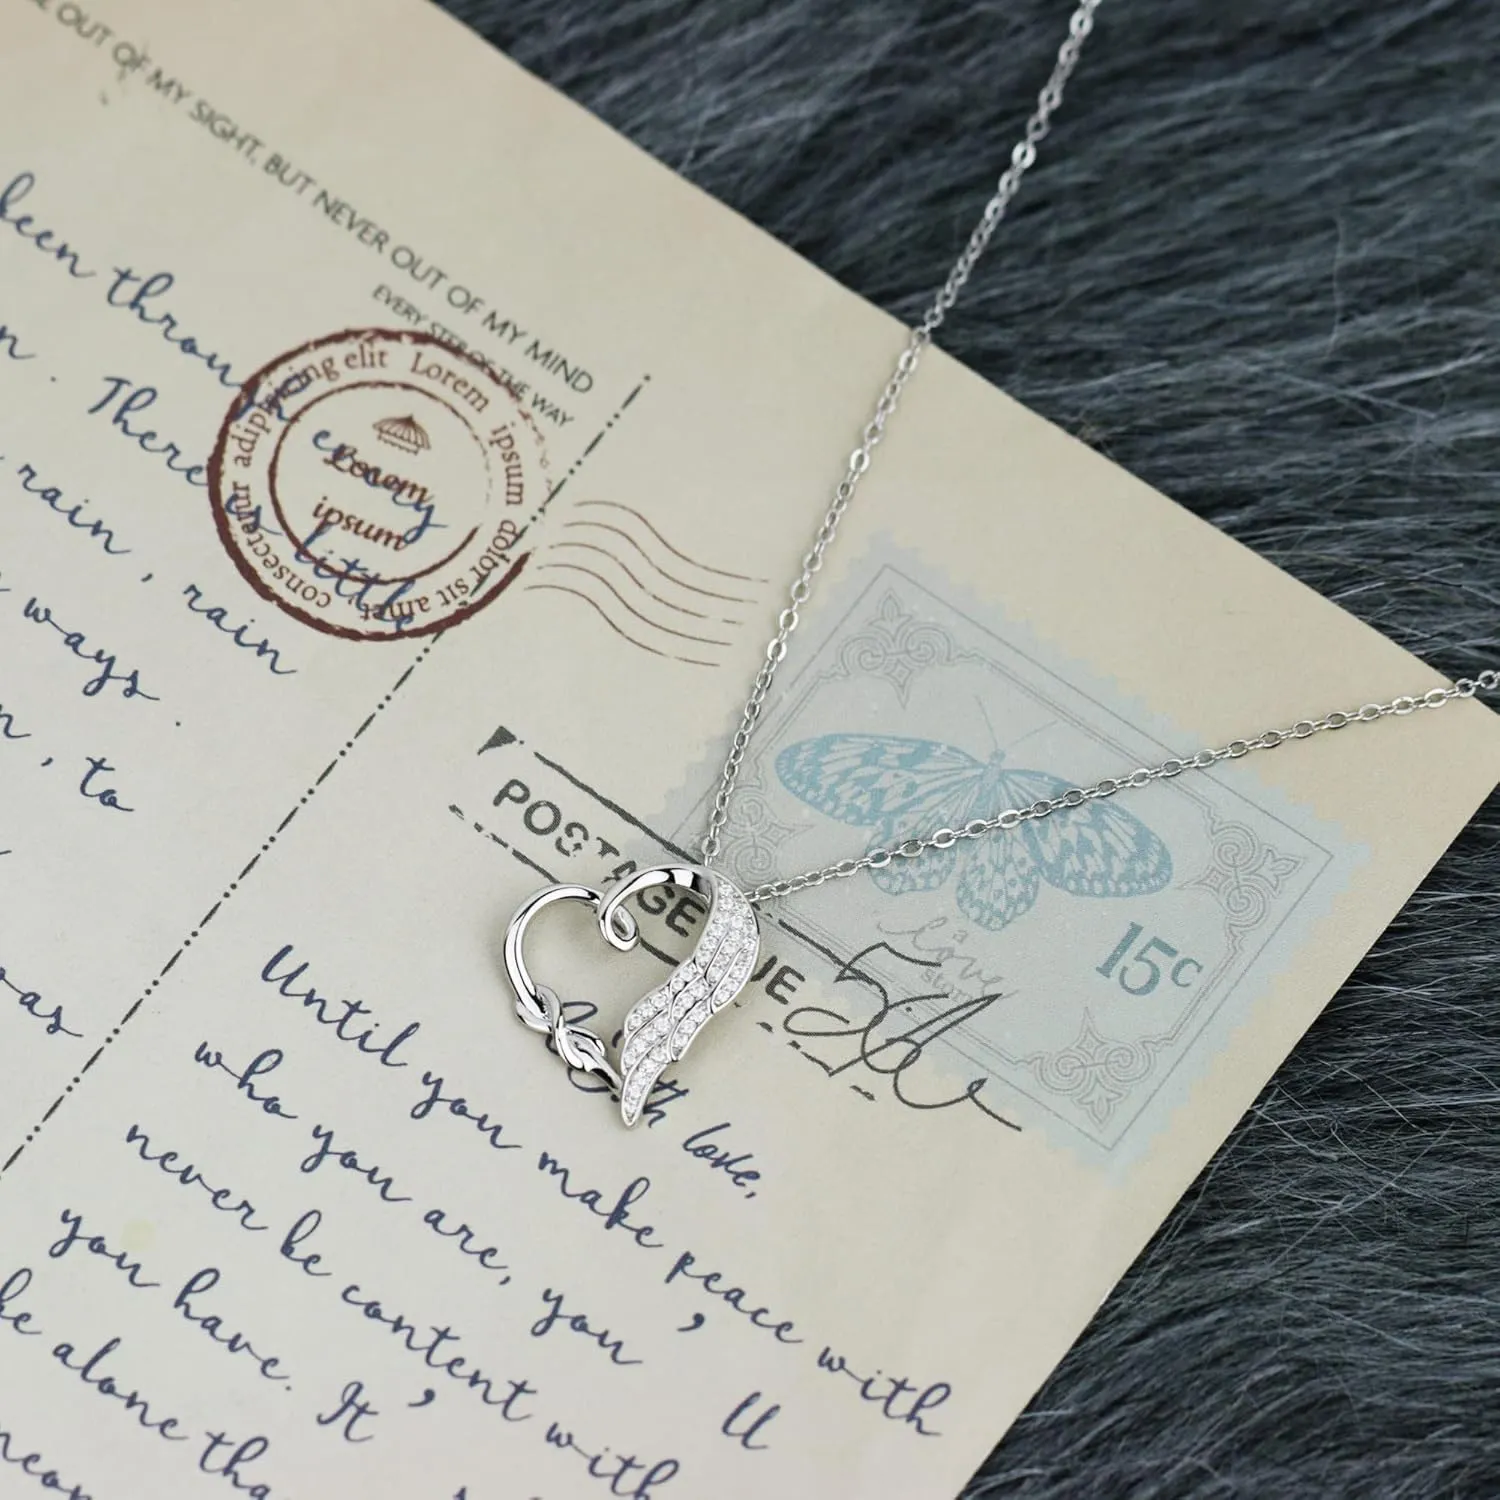 OUT OF MY SIGHT, BUT NEVER OUT OF MY MIND
EVERY STEP OF THE WAY
been through
every
. There is little
rain , rain
ways .
, to
was
Lorem ipsum dolor sit amet consectetur adipisicing elit
Lorem
ipsum
POSTAGE
UE
love
15c
With love,
Until you make peace with
who you are, you ' ll
never be content with
you have. It '
be alone tha